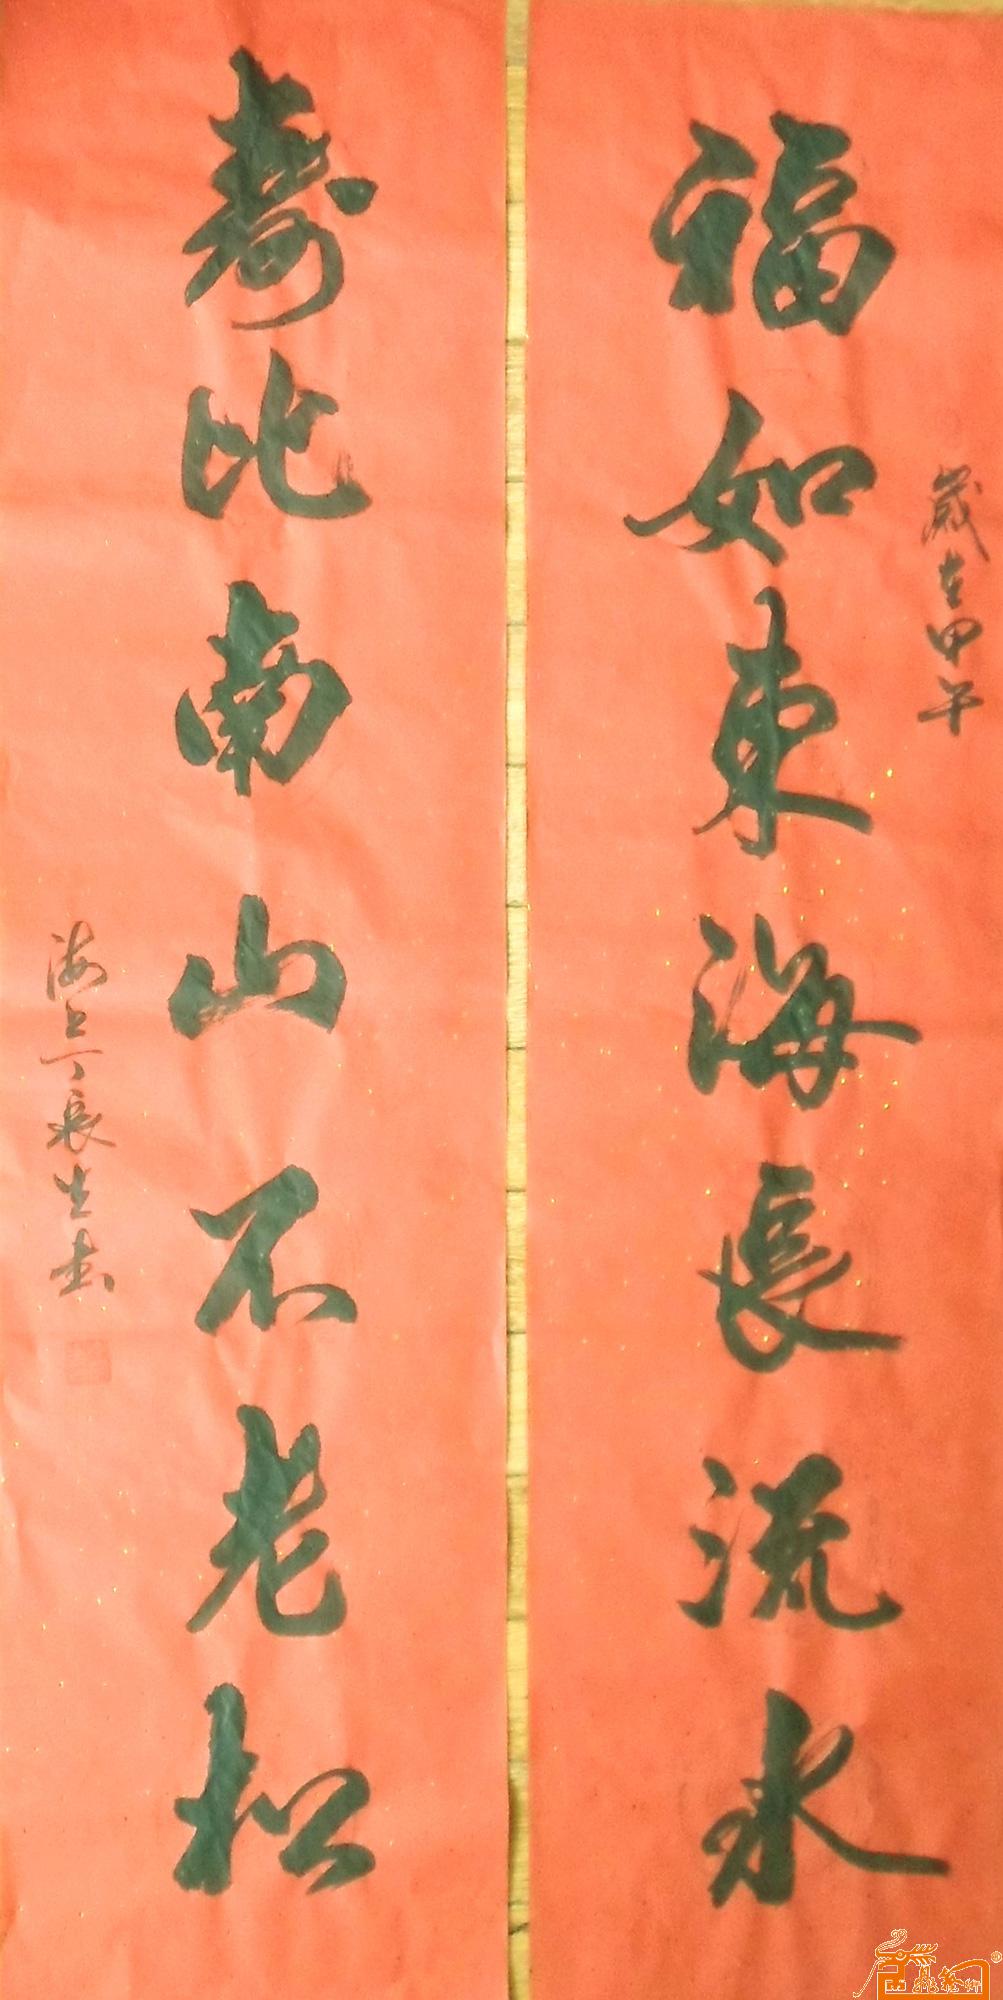 歲在甲午
福如東海長流水
壽比南山不老松
海上丁長生書